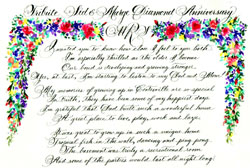 Tribute Sid & Marge Diamond Anniversary
I wanted you to know how close I feel to you both
I'm especially thrilled as the oldest of home
Our bond is developing and growing stronger
Yes, at last, I'm starting to listen to my Dad and Mom!
My memories of growing up in Coatsville are so special
In truth, they have been some of my happiest days
I'm grateful that Dad built such a wonderful home
A great place to live, play, work and laugh
It was great to grow up in such a unique home
Unusual fish in the walls, dancing and ping pong
The basement was truly a recreational room
And some of the parties would last all night long!